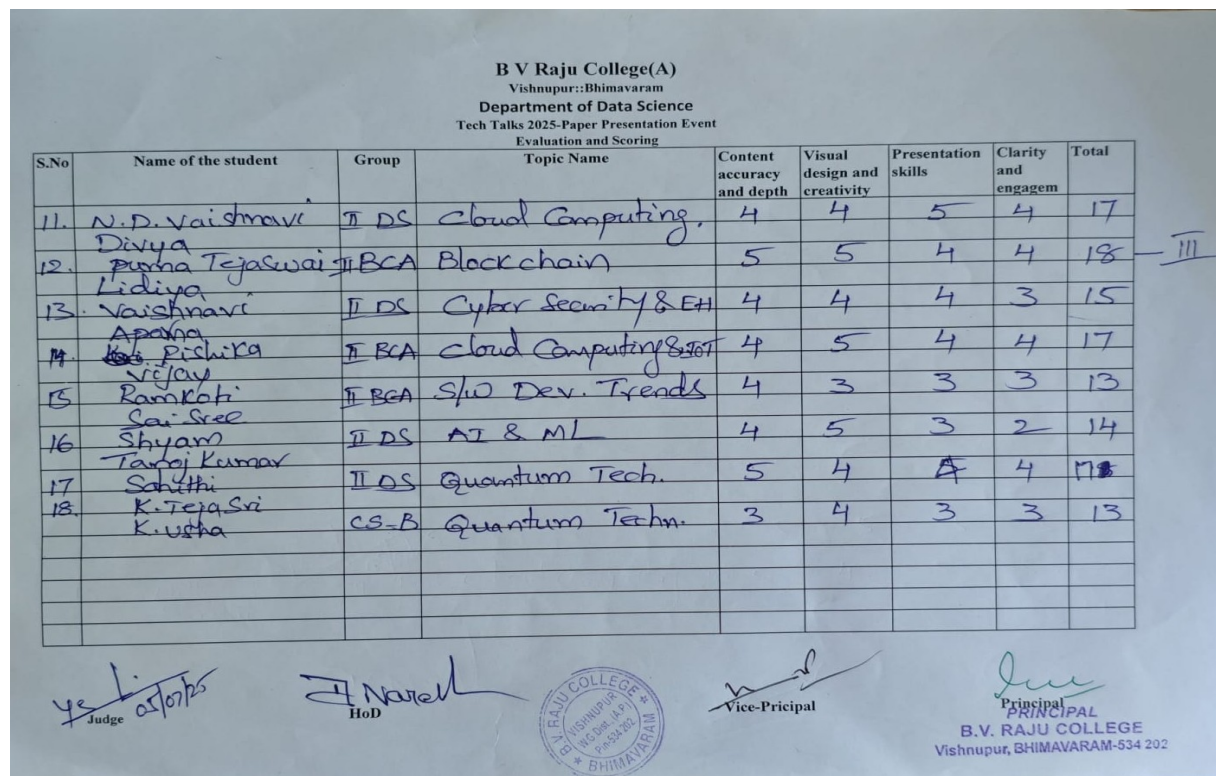 B V Raju College(A)
Vishnupur::Bhimavaram
Department of Data Science
Tech Talks 2025-Paper Presentation Event
Evaluation and Scoring
S.No Name of the student Group Topic Name Content accuracy and depth Visual design and creativity Presentation skills Clarity and engagem Total
11. N.D. Vaishnavi II DS Cloud Computing. 4 4 5 4 17
Divya
12. Purna Tejaswai II BCA Blockchain 5 5 4 4 18 — III
Lidiya
13. Vaishnavi II DS Cyber Security & EH 4 4 4 3 15
Aparna
14 Pishika II BCA Cloud Computing & IOT 4 5 4 4 17
Vijay
15 Ramkoti II BCA S/W Dev. Trends 4 3 3 3 13
Sai Sree
16 Shyam II DS AI & ML 4 5 3 2 14
Kumar
17 Sahithi II DS Quantum Tech. 5 4 4 4 17
18. K. Teja Sri
K. Usha CS-B Quantum Techn. 3 4 3 3 13
05/07/25
Judge HoD Vice-Pricipal Principal
B.V. RAJU COLLEGE
VISHNUPUR
W.G Dist., (A.P.)
Pin-534 202
BHIMAVARAM
PRINCIPAL
B.V. RAJU COLLEGE
Vishnupur, BHIMAVARAM-534 202